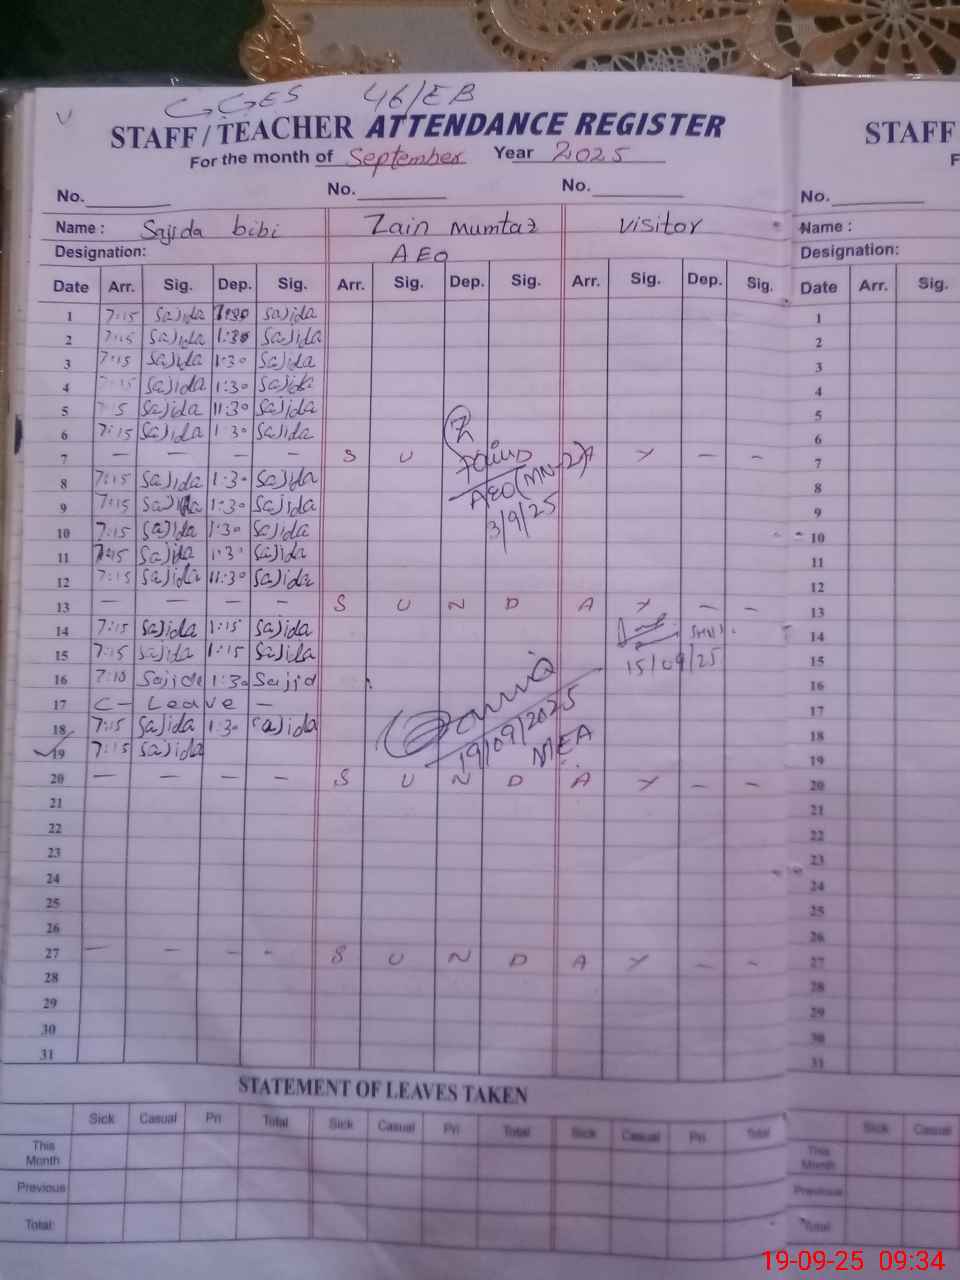 46/EB
STAFF/TEACHER ATTENDANCE REGISTER
For the month of September Year 2025
No. No. No.
Name: Sajida bibi Zain Mumtaz visitor
Designation: AEO
Date Arr. Sig. Dep. Sig. Arr. Sig. Dep. Sig. Arr. Sig. Dep. Sig.
1 7:15 Sajida 1:30 Sajida
2 7:15 Sajida 1:30 Sajida
3 7:15 Sajida 1:30 Sajida
4 7:15 Sajida 1:30 Sajida
5 Sajida 11:30 Sajida
6 7:15 Sajida 1:30 Sajida
7 — — — — S U A Y — —
AEO (MN-2)
3/9/25
8 7:15 Sajida 1:30 Sajida
9 7:15 Sajida 1:30 Sajida
10 7:15 Sajida 1:30 Sajida
11 7:15 Sajida 1:30 Sajida
12 7:15 Sajida 11:30 Sajida
13 — — — — S U N D A Y — —
14 7:15 Sajida 1:15 Sajida
15 7:15 Sajida 1:15 Sajida 15/09/25
16 7:10 Sajida 1:30 Sajid
17 C - Leave —
18 7:15 Sajida 1:30 Sajida
19 7:15 Sajida
19/09/2025
MEA
20 — — — — S U N D A Y — —
21
22
23
24
25
26
27 — — — — S U N D A Y — —
28
29
30
31
STATEMENT OF LEAVES TAKEN
Sick Casual Pri Total Sick Casual Pri Total Sick Casual Pri Total
This Month
Previous
Total:
STAFF
F
No.
Name:
Designation:
Date Arr. Sig.
1
2
3
4
5
6
7
8
9
10
11
12
13
14
15
16
17
18
19
20
21
22
23
24
25
26
27
28
29
30
31
Sick Casual
This Month
Previous
Total
19-09-25 09:34